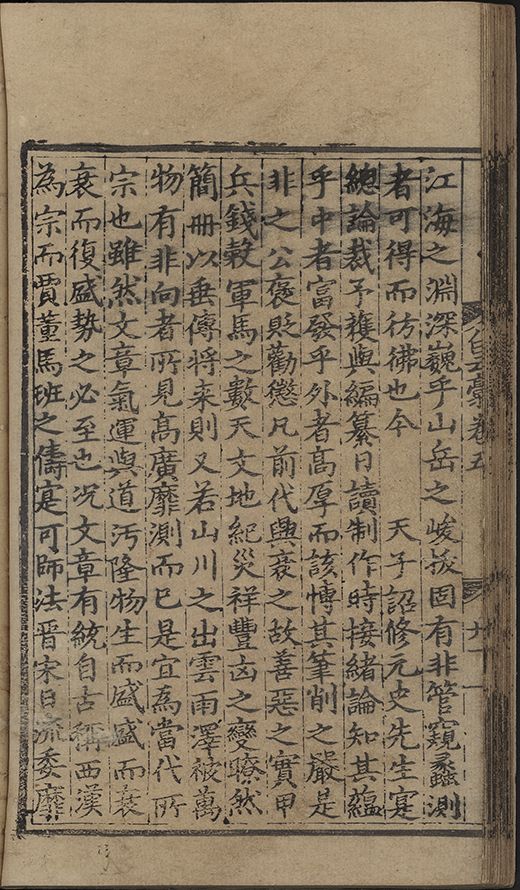 江海之淵深巍乎山岳之峻拔固有非管窺蠡測
者可得而彷彿也今 天子詔修元史先生寔
總論裁予獲與編纂日讀制作時接緒論知其蘊
乎中者富發乎外者高厚而該博其筆削之嚴是
非之公褒貶勸懲凡前代興衰之故善惡之實甲
兵錢穀軍馬之數天文地紀災祥豐凶之變瞭然
簡冊以垂傳將來則又若山川之出雲雨澤被萬
物有非向者所見高廣靡測而已是宜為當代所
宗也雖然文章氣運與道汚隆物生而盛盛而衰
衰而復盛勢之必至也况文章有統自古稱西漢
為宗而賈董馬班之儔寔可師法晋宋日流委靡
白云稾卷五